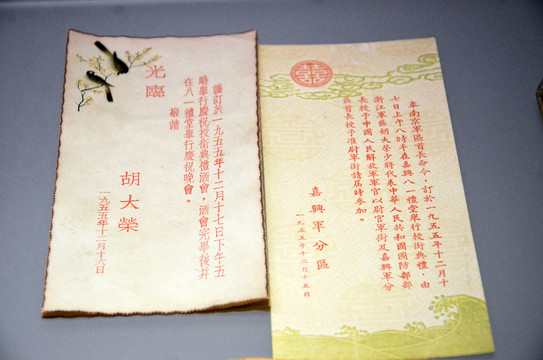 謹訂於一九五五年十二月十七日下午五
時舉行慶祝授銜典禮酒會，酒會完畢後并
在八一禮堂舉行慶祝晚會。
敬請
光臨
胡大榮
一九五五年十二月十六日
奉南京軍區首長命令，訂於一九五五年十二月十
七日上午八時半在嘉興八一禮堂舉行授銜典禮，由
浙江軍區胡大榮少將代表中華人民共和國國防部部
長授予中國人民解放軍軍官以尉官軍銜及嘉興軍分
區首長授予准尉軍銜請屆時參加。
嘉興軍分區
一九五五年十二月十五日